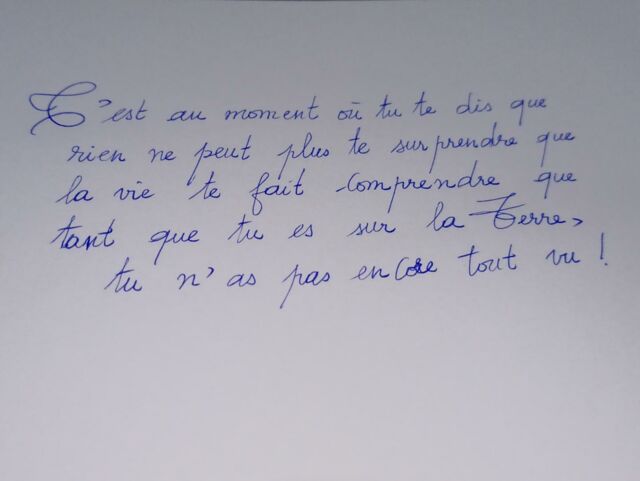 C'est au moment où tu te dis que
rien ne peut plus te surprendre que
la vie te fait comprendre que
tant que tu es sur la Terre,
tu n'as pas encore tout vu !